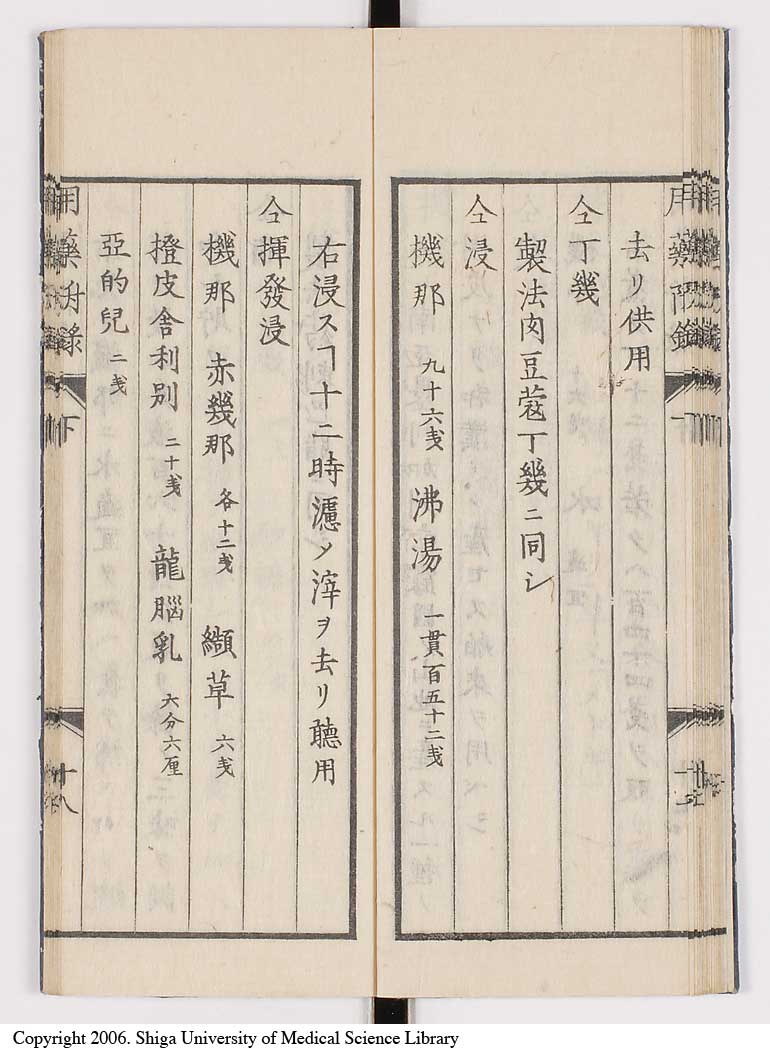 去リ供用
仝丁幾
製法肉豆蔲丁幾ニ同シ
仝浸
機那 九十六戔 沸湯 一貫百五十二戔
右浸スヿ十二時漉ノ滓ヲ去リ聽用
仝揮發浸
機那 赤幾那 各十二戔 纈草 六戔
橙皮舎利別 二十戔 龍腦乳 六分六厘
亞的兒 二戔
下
十八
Copyright 2006. Shiga University of Medical Science Library